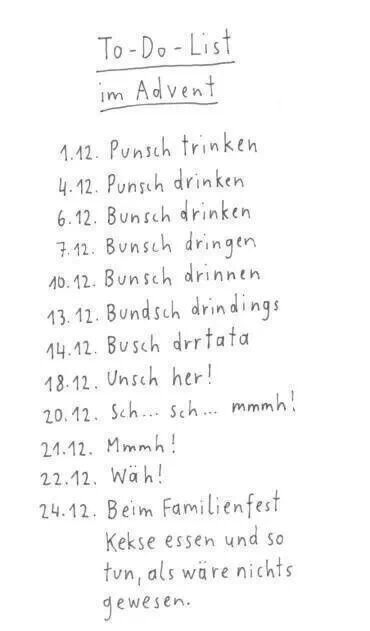 To-Do-List
im Advent
1.12. Punsch trinken
4.12. Punsch drinken
6.12. Bunsch drinken
7.12. Bunsch dringen
10.12. Bunsch drinnen
13.12. Bundsch drindings
14.12. Busch drrtata
18.12. Unsch her!
20.12. Sch... sch... mmmh!
21.12. Mmmh!
22.12. Wäh!
24.12. Beim Familienfest
Kekse essen und so
tun, als wäre nichts
gewesen.